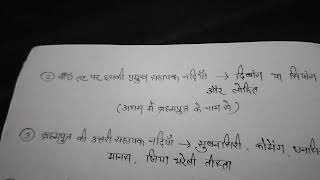 ② बाँऐ तट पर इसकी प्रमुख सहायक नदियाँ → दिबांग या सिंयांग
और लोहित
(असम में ब्रह्मपुत्र के नाम से)
③ ब्रह्मपुत्र की उत्तरी सहायक नदियाँ → सुबनसिरी, कामेंग,
मानस, जिया भरेली तीस्ता